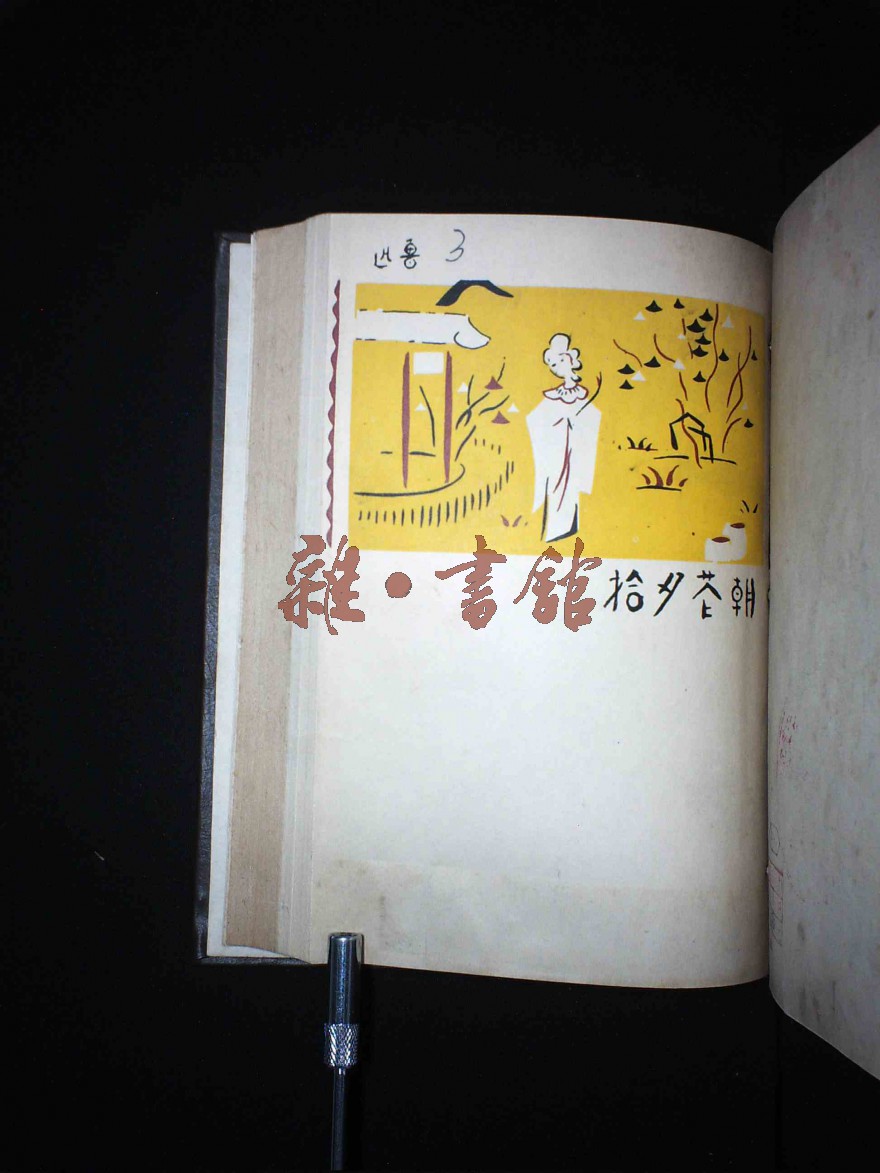 魯迅
3
朝花夕拾
雜·書館